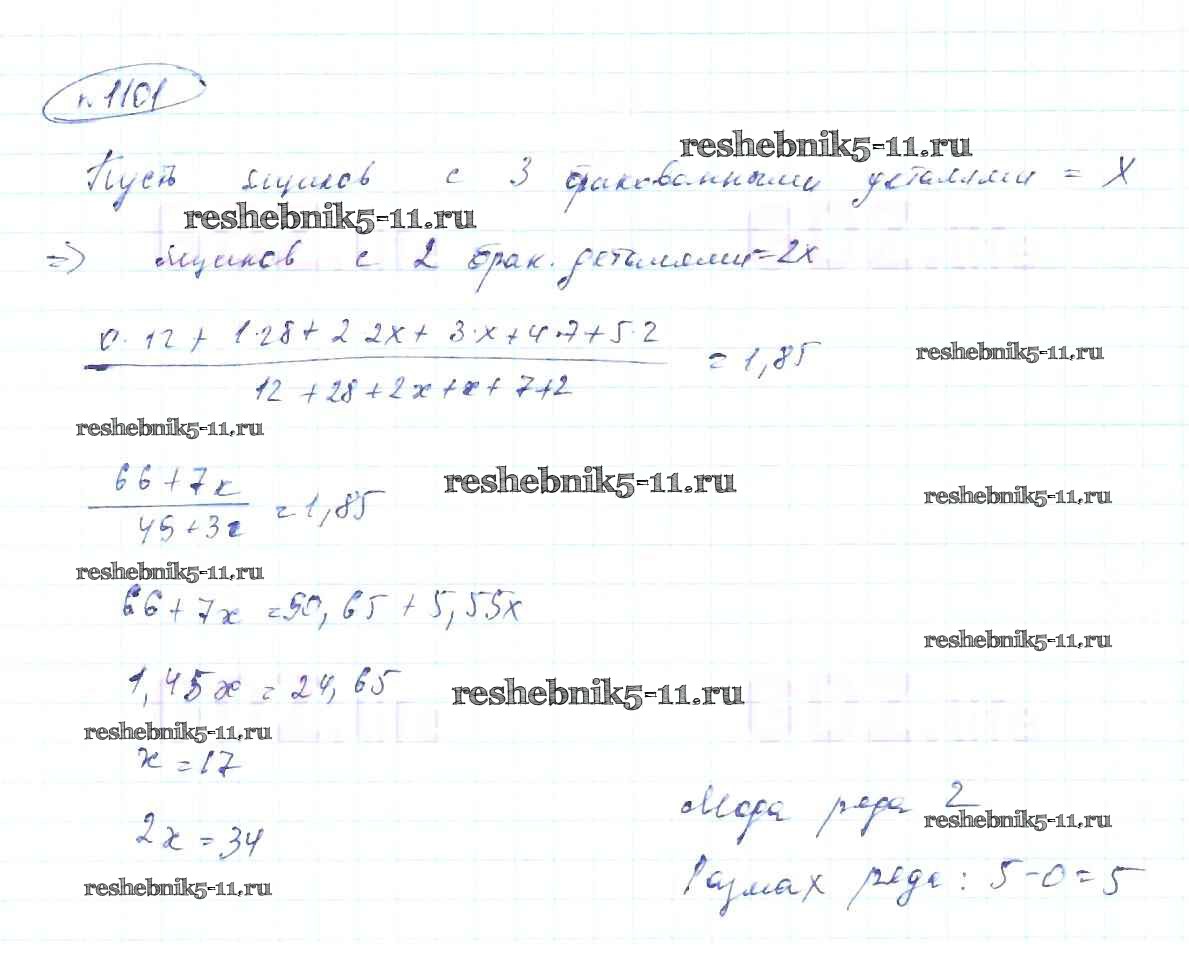 п. 1101
reshebnik5-11.ru
Пусть ящиков с 3 бракованными деталями = X
reshebnik5-11.ru
=> ящиков с 2 брак. деталями = 2x
0·12 + 1·28 + 2 2x + 3·x + 4·7 + 5·2
12 + 28 + 2x + x + 7 + 2
= 1,85
reshebnik5-11.ru
reshebnik5-11.ru
66 + 7x
49 + 3x
= 1,85
reshebnik5-11.ru
reshebnik5-11.ru
reshebnik5-11.ru
66 + 7x = 90,65 + 5,55x
reshebnik5-11.ru
1,45x = 24,65
reshebnik5-11.ru
reshebnik5-11.ru
x = 17
Мода ряда 2
reshebnik5-11.ru
2x = 34
Размах ряда: 5 - 0 = 5
reshebnik5-11.ru